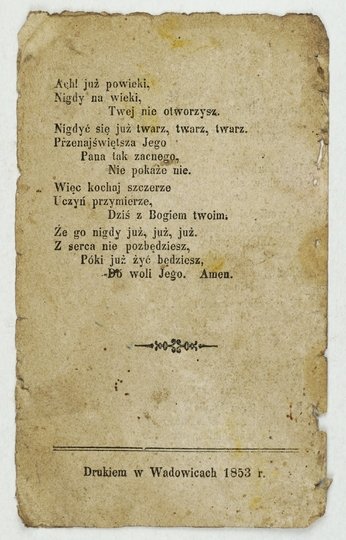 Ach! już powieki,
Nigdy na wieki,
Twej nie otworzysz.
Nigdyć się już twarz, twarz, twarz.
Przenajświętsza Jego
Pana tak zacnego,
Nie pokaże nie.
Więc kochaj szczerze
Uczyń przymierze,
Dziś z Bogiem twoim.
Że go nigdy już, już, już.
Z serca nie pozbędziesz,
Póki już żyć będziesz,
Do woli Jego. Amen.
Drukiem w Wadowicach 1853 r.